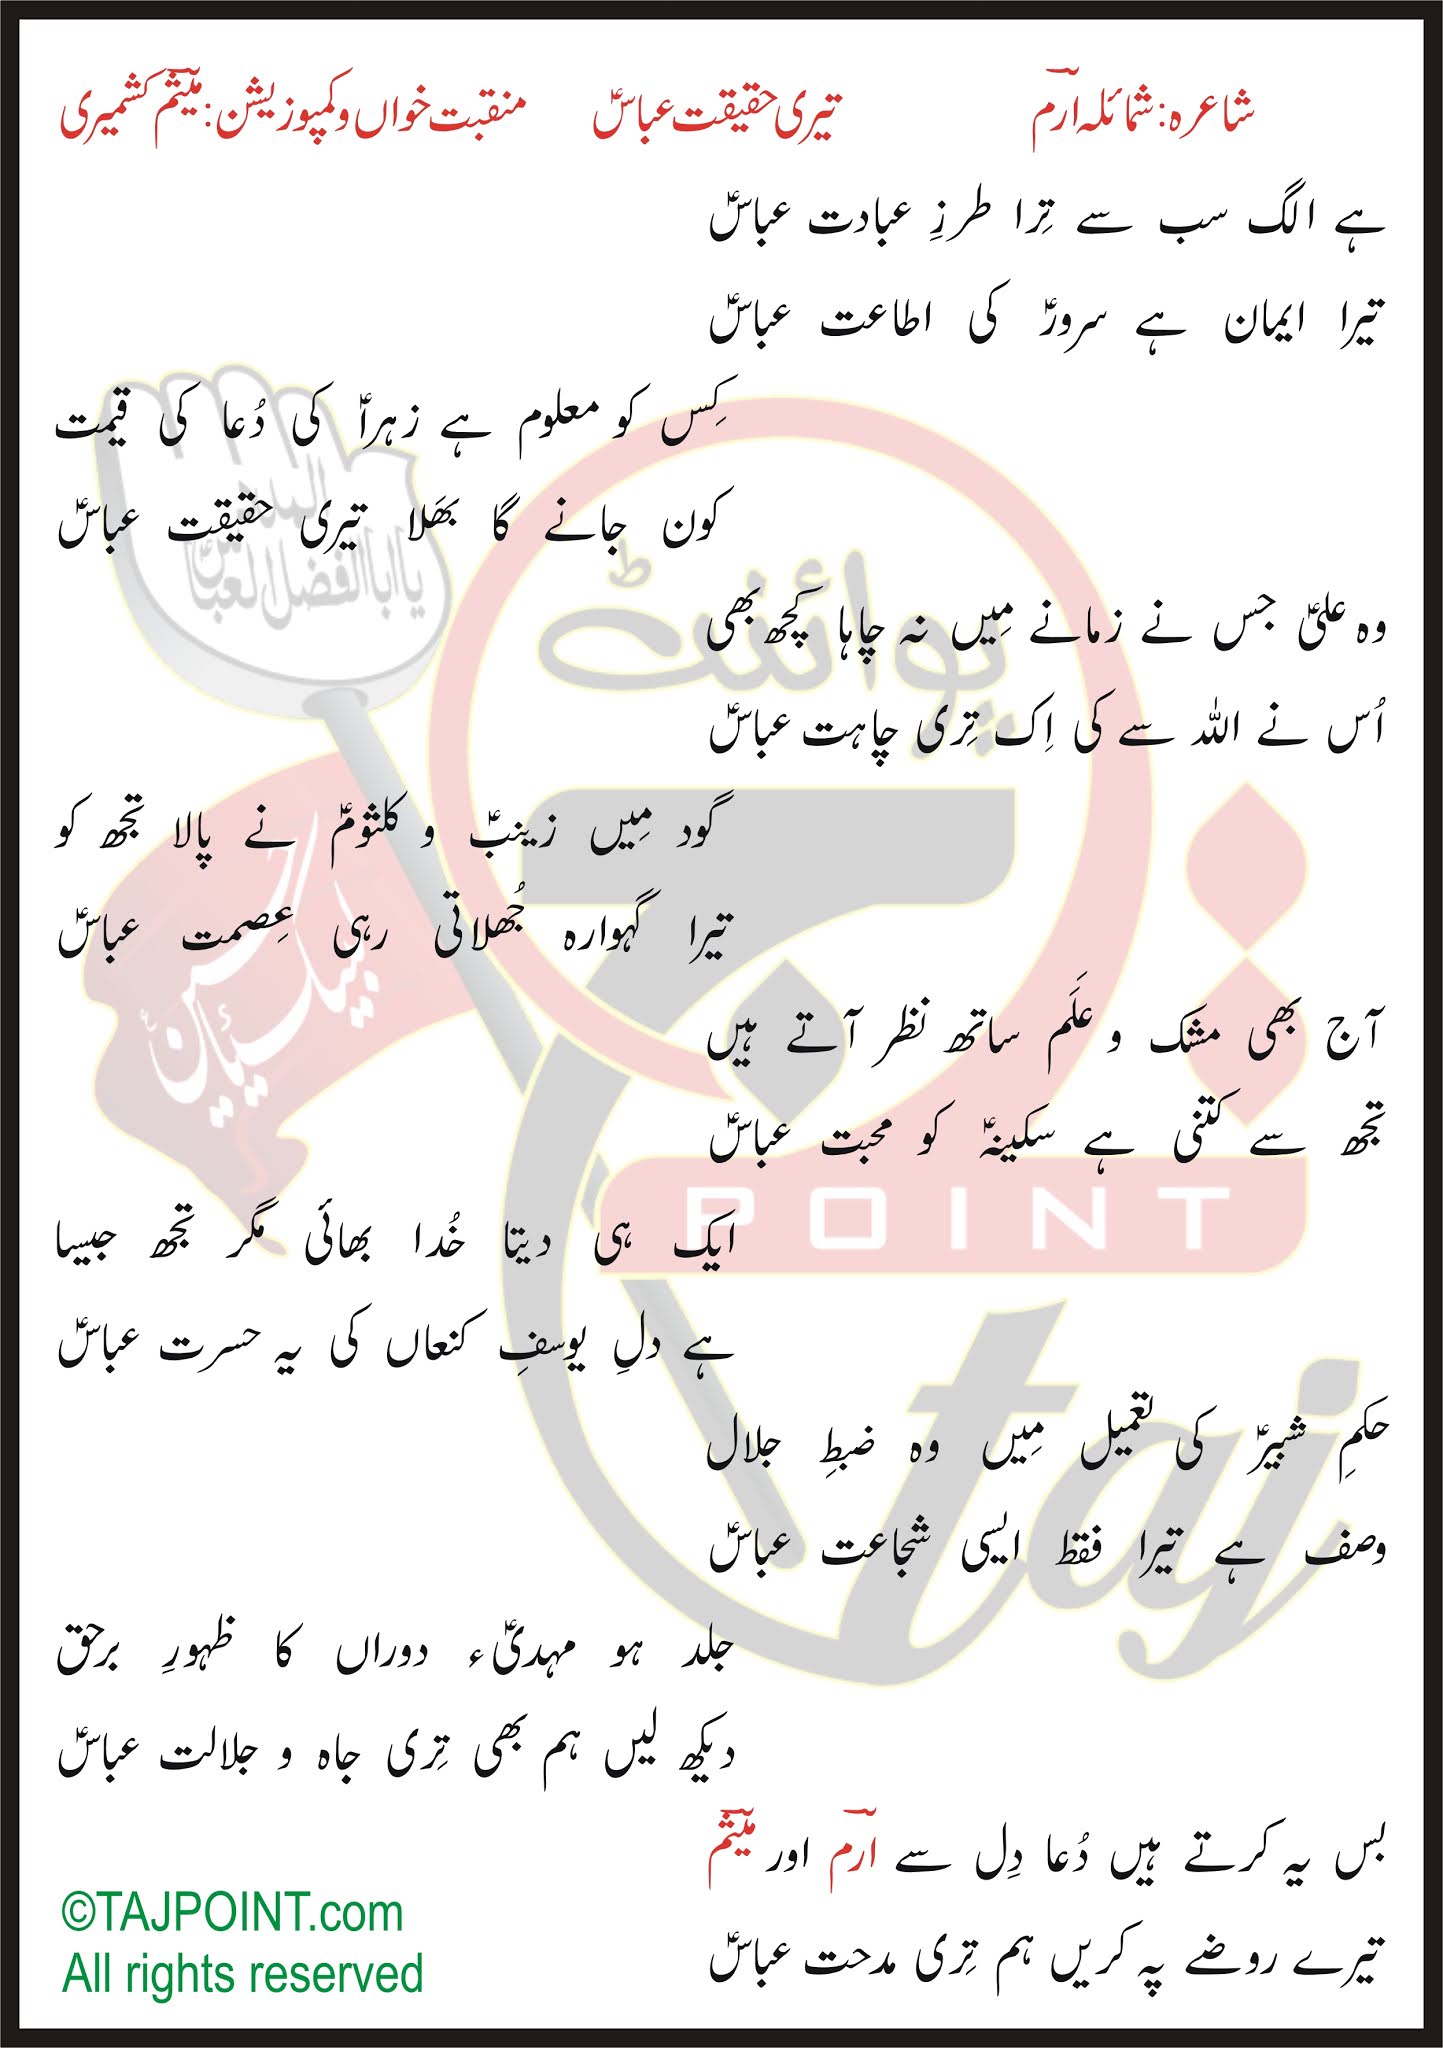 شاعرہ: شمائلہ ارمؔ تیری حقیقت عباسؑ منقبت خواں و کمپوزیشن: میثمؔ کشمیری
ہے الگ سب سے تِرا طرزِ عبادت عباسؑ
تیرا ایمان ہے سرورؑ کی اطاعت عباسؑ
کِس کو معلوم ہے زہراؑ کی دُعا کی قیمت
کون جانے گا بھَلا تیری حقیقت عباسؑ
وہ علیؑ جس نے زمانے مِیں نہ چاہا کچھ بھی
اُس نے اللہ سے کی اِک تِری چاہت عباسؑ
گود مِیں زینبؑ و کلثومؑ نے پالا تجھ کو
تیرا گہوارہ جُھلاتی رہی عِصمت عباسؑ
آج بھی مشک و عَلَم ساتھ نظر آتے ہیں
تجھ سے کتنی ہے سکینہؑ کو محبت عباسؑ
ایک ہی دیتا خُدا بھائی مگر تجھ جیسا
ہے دلِ یوسفِ کنعاں کی یہ حسرت عباسؑ
حکمِ شبیرؑ کی تعمیل مِیں وہ ضبطِ جلال
وصف ہے تیرا فقط ایسی شجاعت عباسؑ
جلد ہو مہدیؑء دوراں کا ظہورِ برحق
دیکھ لیں ہم بھی تِری جاہ و جلالت عباسؑ
بس یہ کرتے ہیں دُعا دِل سے ارمؔ اور میثمؔ
تیرے روضے پہ کریں ہم تِری مدحت عباسؑ
©TAJPOINT.com
All rights reserved
یا ابا الفضل العباسؑ
لبیک یا حسینؑ
پوائنٹ
تاج
POINT
taj